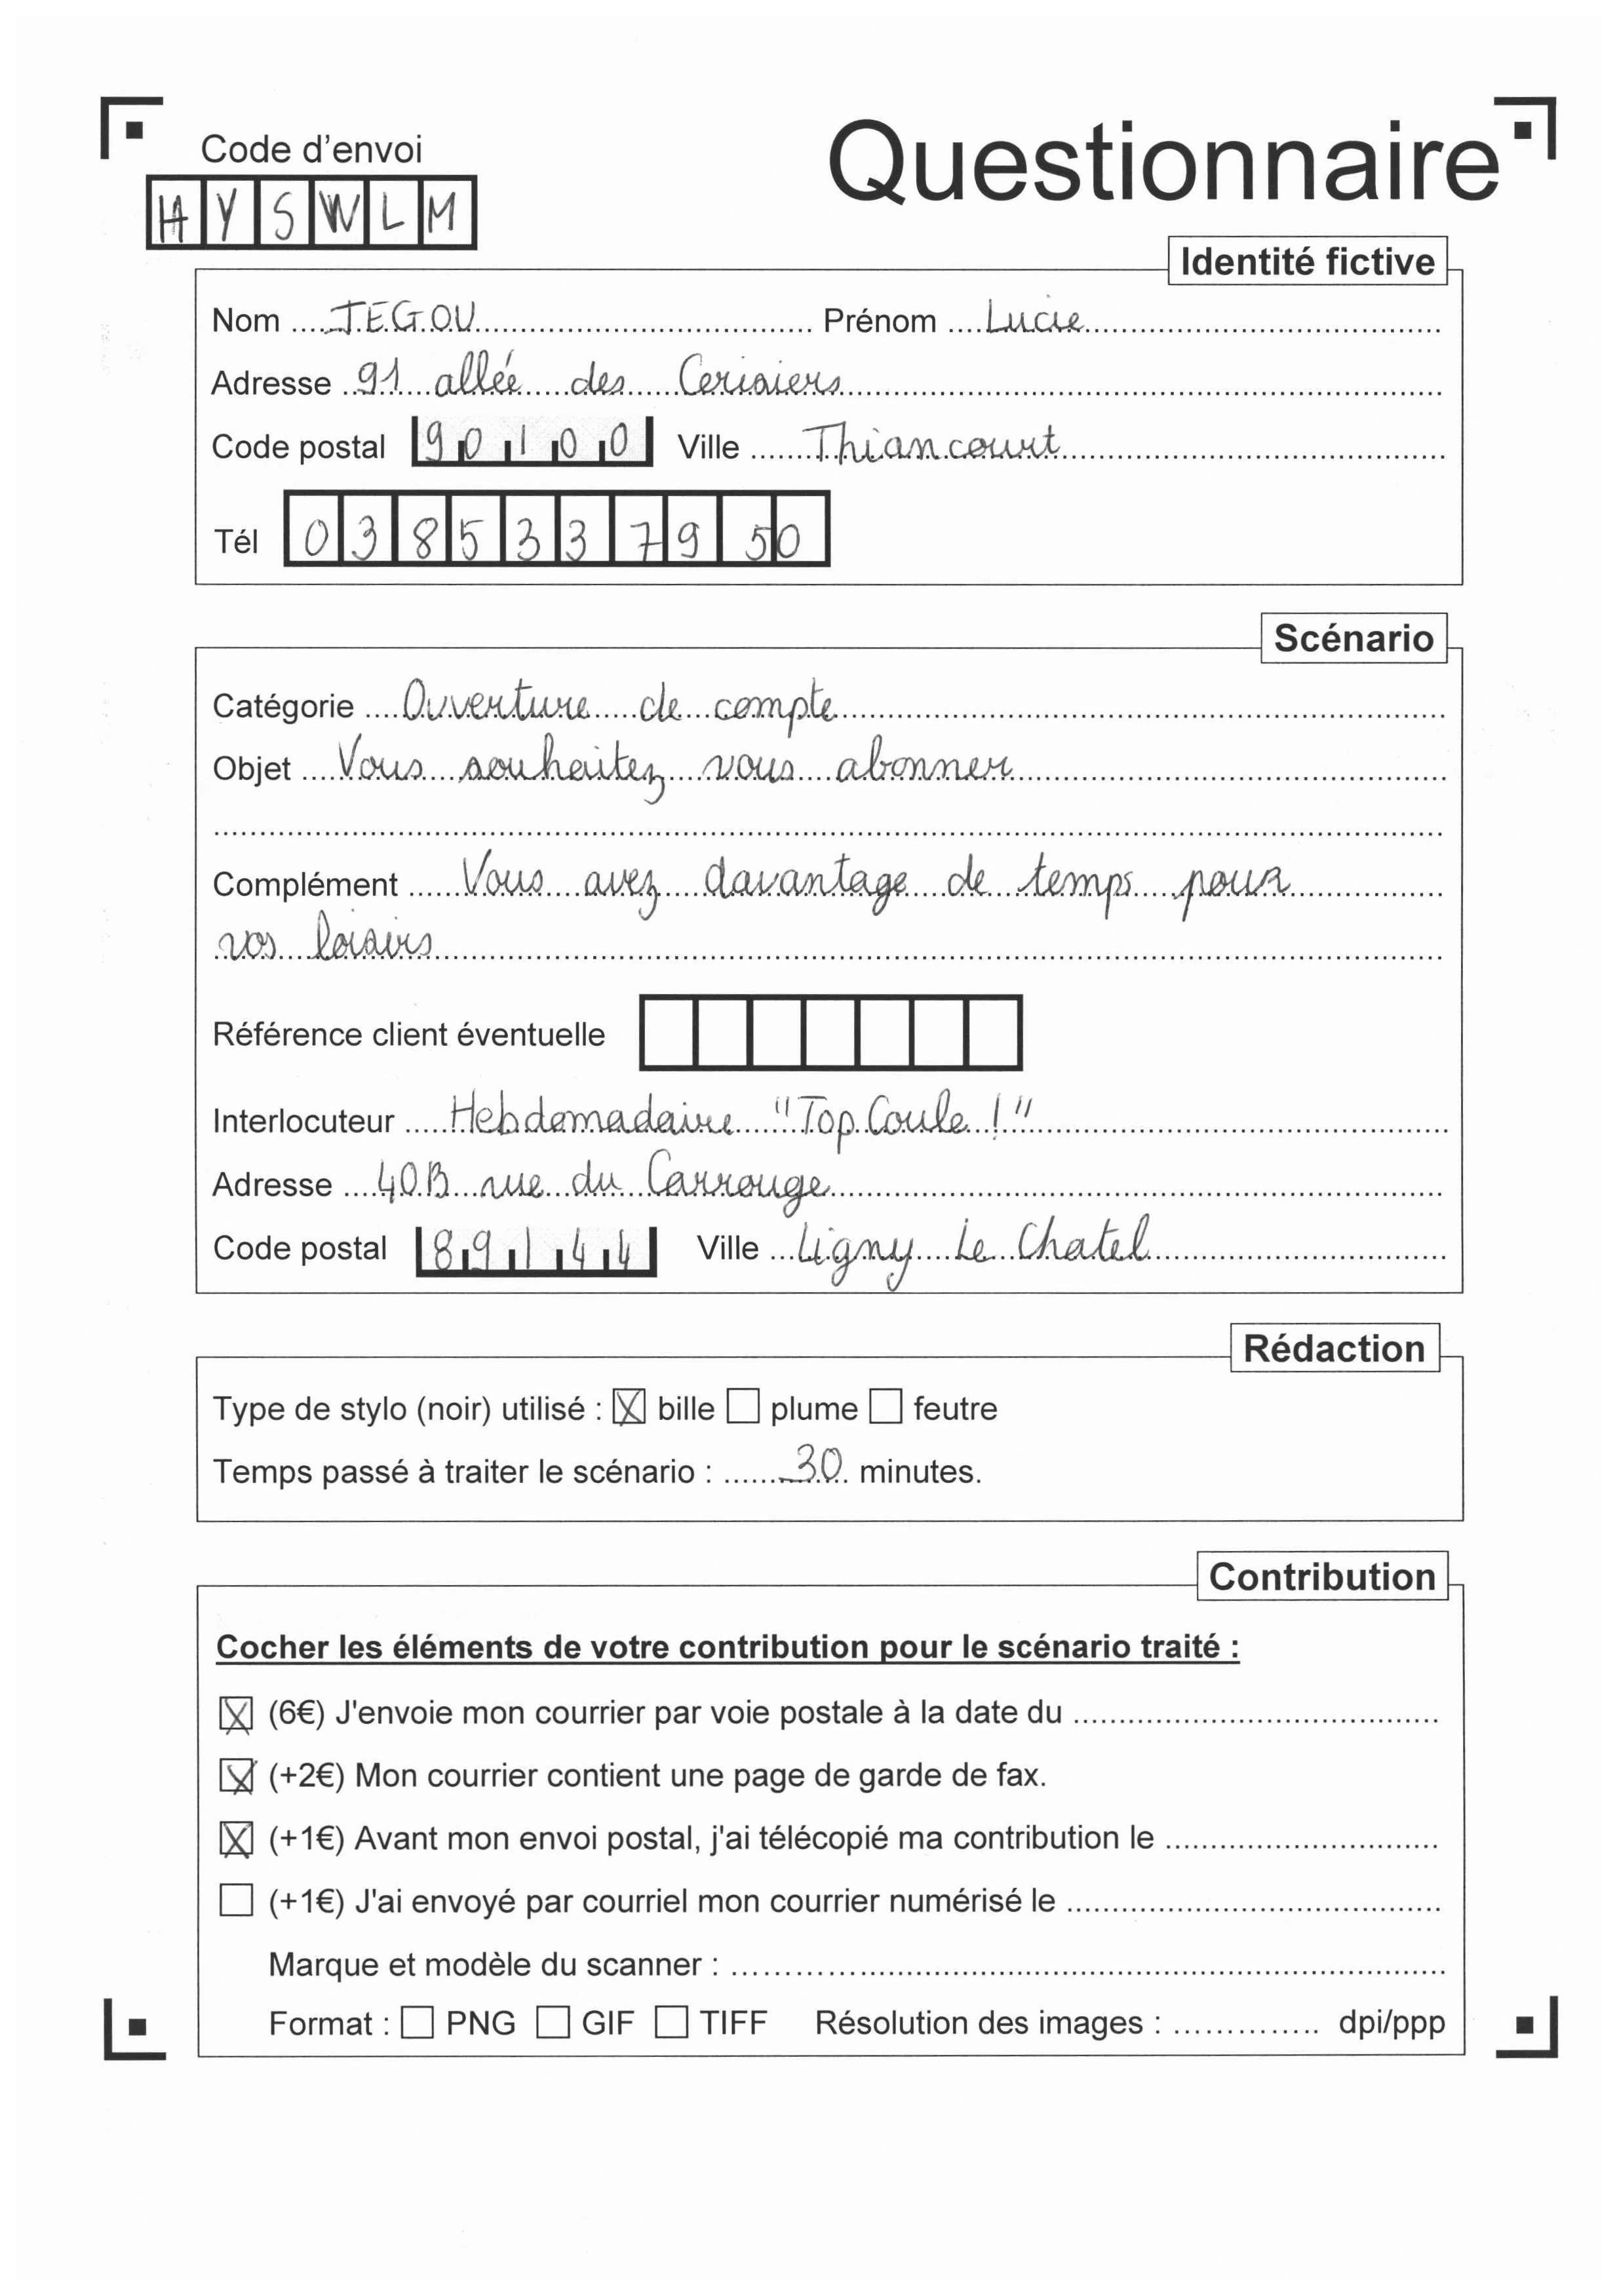 Code d'envoi
Questionnaire
HYSWLM
Identité fictive
Nom JEGOU Prénom Lucie
Adresse 91 allée des Cerisiers
Code postal 90100 Ville Thiancourt
Tél 0385337950
Scénario
Catégorie Ouverture de compte
Objet Vous souhaitez vous abonner
Complément Vous avez davantage de temps pour
vos loisirs
Référence client éventuelle
Interlocuteur Hebdomadaire "Top Coule !"
Adresse 40B rue du Carrouge
Code postal 89144 Ville Ligny Le Chatel
Rédaction
Type de stylo (noir) utilisé : ☒ bille ☐ plume ☐ feutre
Temps passé à traiter le scénario : 30 minutes.
Contribution
Cocher les éléments de votre contribution pour le scénario traité :
☒ (6€) J'envoie mon courrier par voie postale à la date du
☒ (+2€) Mon courrier contient une page de garde de fax.
☒ (+1€) Avant mon envoi postal, j'ai télécopié ma contribution le
☐ (+1€) J'ai envoyé par courriel mon courrier numérisé le
Marque et modèle du scanner :
Format : ☐ PNG ☐ GIF ☐ TIFF Résolution des images : dpi/ppp